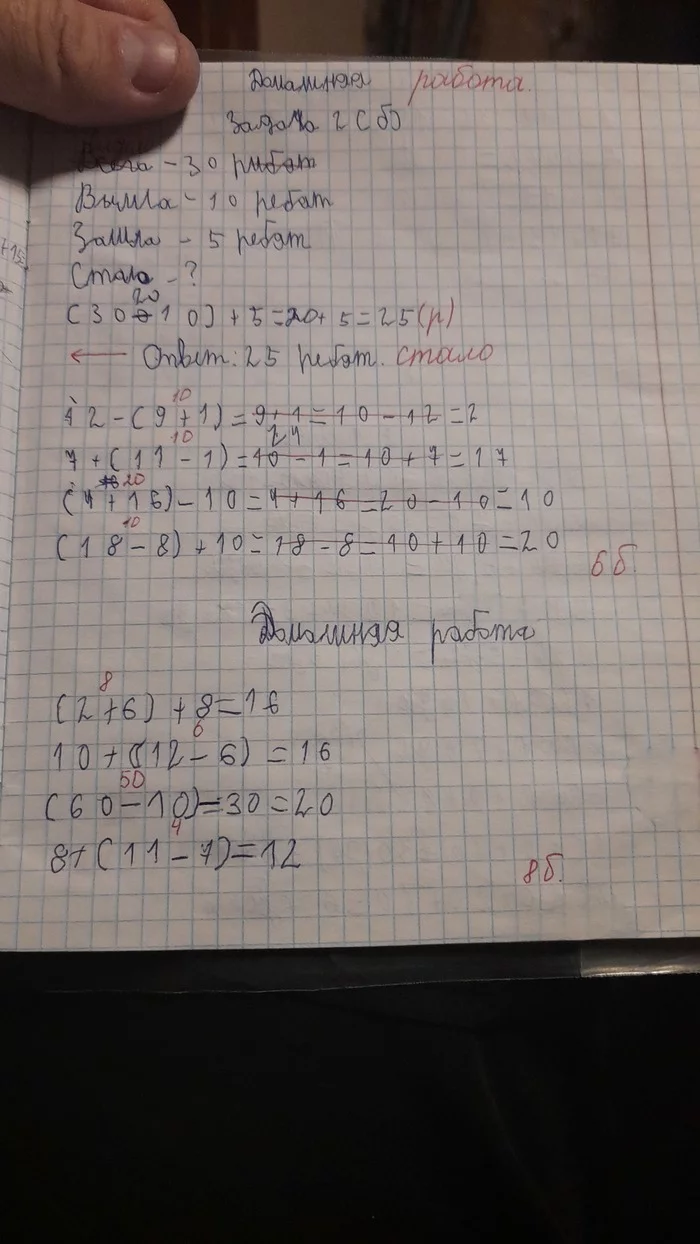 Домашняя работа.
Задача 2 (б)
Всего - 30 рибят
Вышла - 10 ребят
Зашла - 5 ребят
Стало - ?
20
(30-10)+5=20+5=25(р)
← Ответ: 25 ребят. стало
10
12-(9+1)=9+1=10-12=2
10
7+(11-1)=10-1=10+7=17
20
(4+16)-10=4+16=20-10=10
10
(18-8)+10=18-8=10+10=20
6б.
Домашняя работа
8
(2+6)+8=16
6
10+(12-6)=16
50
(60-10)-30=20
4
8+(11-7)=12
8б.